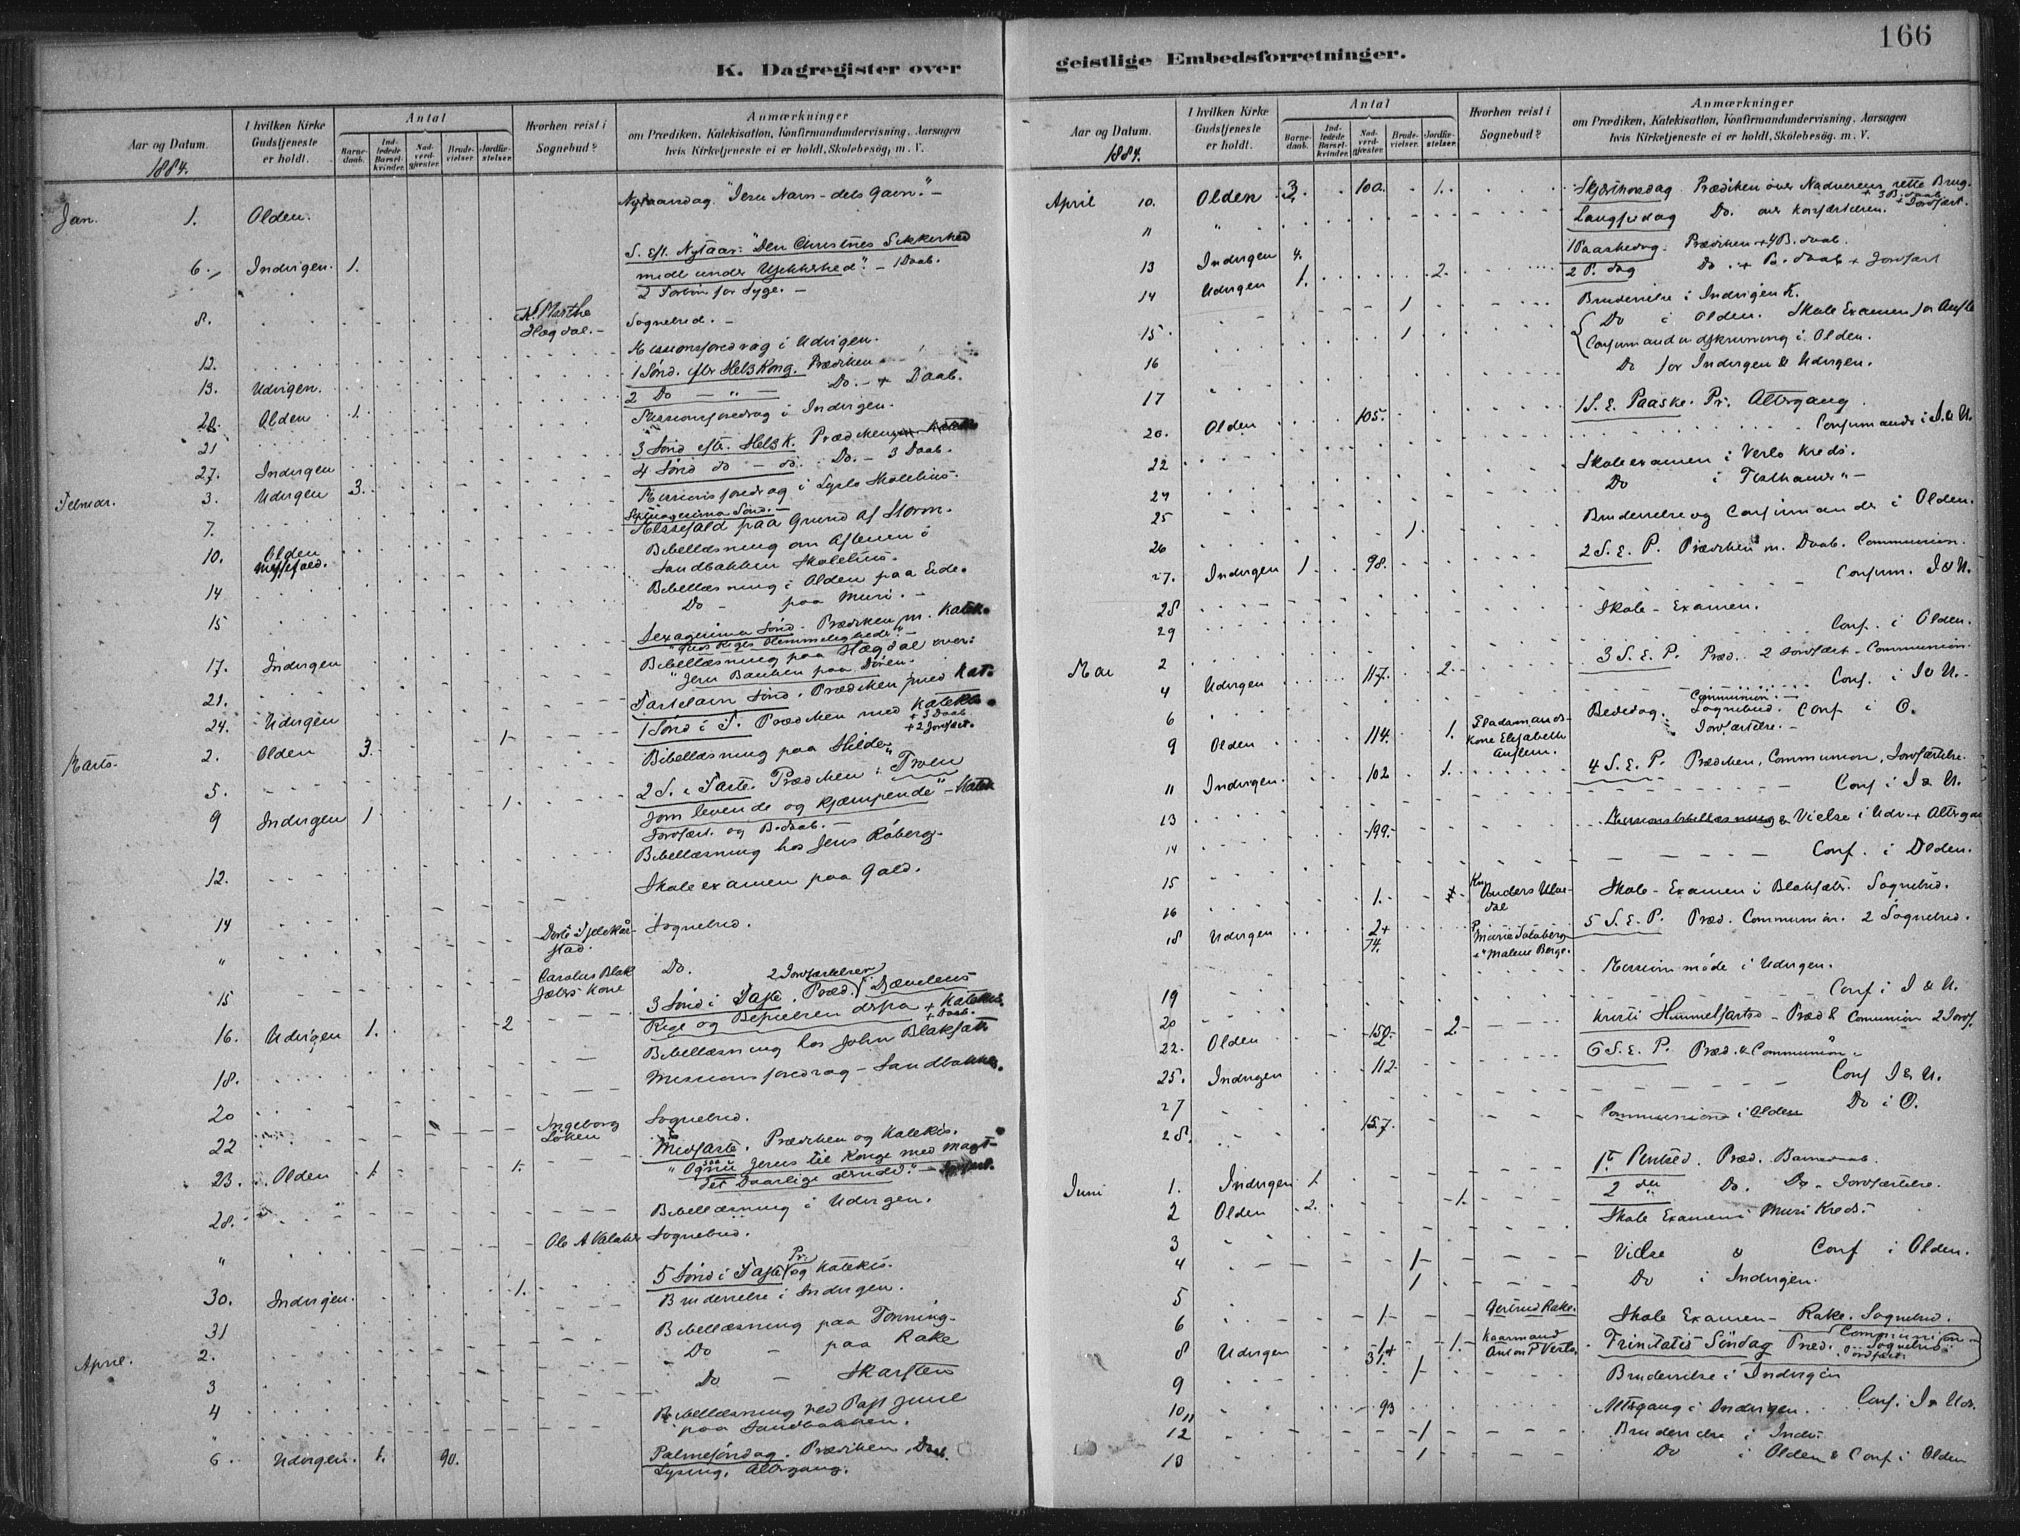 166
K. Dagregister over
geistlige Embedsforretninger.
Aar og Datum.
1884.
I hvilken Kirke Gudstjeneste er holdt.
Antal
Barne-daab.
Ind-ledede Barsel-kvinder.
Nad-verd-gjæster.
Brude-vielser.
Jordfæ-stelser.
Hvorhen reist i Sognebud?
Anmærkninger
om Prædiken, Katekisation, Konfirmandundervisning, Aarsagen
hvis Kirketjeneste ei er holdt, Skolebesøg, m. V.
Jan. 1. Olden. Nytaarsdag "Jesu Navn - dets Gavn." -
S. Eft. Nytaar: "Den Christnes Sikkerhed
6. Indvigen. 1. midt under Usikkerhed". - 1 Daab.
2 Forbøn for Syge. -
8. Marthe Hægdal. - Sognebud. -
12. Missionsforedrag i Udvigen.
13. Udvigen. 1 Sønd. eftr Hel3Kong. Prædiken
20. Olden 1. 2 Do - " - Do. - + Daab.
21 Missionsforedrag i Indvigen.
27. Indvigen 3 Sønd eftr. Hel3K. Prædiken
Februar. 3. Udvigen 3. 4 Sønd do - do. Do. - 3 Daab.
7. Missionsforedrag i Skolehus.
Septuagesima Sønd. -
10. Olden Messefald. Messefald paa Grund af Storm.
Bibellæsning om Aftenen i
Sandbakken Skolehus.
14 Bibellæsning i Olden paa Eide.
15 Do - paa Muri. -
17. Indvigen Sexagesima Sønd. Prædiken m. Katek.
"Guds Riges Hemmeligheder". -
21. Bibellæsning paa Hægdal over:
"Jesu Banken paa Døren.
24. Udvigen Fastelavn Sønd. Prædiken med Kat.
Marts. 2. Olden 3. 1. 1 Sønd i F. Prædiken med Katekis. + 3 Daab + 2 Jordfæst.
5. Bibellæsning paa Hilde.
9 Indvigen 1 1. 2 S. i Faste. Prædiken: "Troen
som levende og kjæmpende" - Katek
Jordfæst. og B.daab. -
12. Bibellæsning hos Jens Raberg.
14 Skoleexamen paa Gald.
" Dorte stad. Sognebud.
15 Carolus Blakfæters Kone Do.
16. Udvigen 1. 2 3 Sønd i Faste. Præd. 2 Jordfæstelser Djævelens
Rige og Befrielsen derfra + Katekis. + Daab.
18. Bibellæsning hos John Blakfæt
20 Missionsforedrag - Sandbakken.
22 Ingeborg Løken Sognebud.
23. Olden 1. 1. Midfaste. Prædiken og Katekis.
"Ogsaa nu Jesus til Konge med Magt -
det Daarlige derved". - Jordfæst.
28. Bibellæsning i Udvigen.
" Ole A Valaker Sognebud.
30. Indvigen. 1. 5 Sønd i Faste Pr. og Katekis.
31 Brudevielse i Indvigen.
April. 2. Bibellæsning paa Tonning.
3 Do - paa Rake
4 Do - Skarsten
" Bibellæsning ved Past Juul
paa Sandbakken.
6. Udvigen. 1. 90. Palmesøndag. Prædiken, Daab.
Lysing, Altergang.
Aar og Datum.
1884.
I hvilken Kirke Gudstjeneste er holdt.
Antal
Barne-daab.
Ind-ledede Barsel-kvinder.
Nad-verd-gjæster.
Brude-vielser.
Jordfæ-stelser.
Hvorhen reist i Sognebud?
Anmærkninger
om Prædiken, Katekisation, Konfirmandundervisning, Aarsagen
hvis Kirketjeneste ei er holdt, Skolebesøg, m. V.
April 10. Olden 3. 100. 1. Skjærthorsdag. Prædiken over Nadverens rette Brug. + 3 B.daab + Jordfæst.
11 " Langfredag Do. over Korsfæstelsen.
13 Indvigen 4. 1 Paaskedag. Prædiken + 4 B.daab.
14 Udvigen 1. 2. 2 P. dag Do. + B. daab + Jordfæst
15. 1 Brudevielse i Indvigen K.
16 1 Do i Olden. Skole Examen for
17 Confirmandudskrivning i Olden.
Do for Indvigen & Udvigen.
20. Olden 105. 1 S. E. Paaske. Pr. Altergang.
22 Confirmands i I. & U.
24 Skoleexamen i Verlo Kreds.
25 Do i "-
26 1. Brudevielse og Confirmander i Olden.
27. Indvigen 1. 98. 2 S. E. P. Prædiken m. Daab. Communion.
28 Confirm. I & U.
29 Skole-Examen.
Mai 2 Conf. i Olden.
4 Udvigen 117. 2. 3 S. E. P. Præd. 2 Jordfæst - Communion.
6 Conf. i I & U.
9 Olden 114. 1. Kone Elisabeth Bededag. Communion. - Sognebud. Jordfæstelse. - Conf i O.
11 Indvigen. 102 1. 4 S. E. P. Prædiken, Communion, Jordfæstelse.
13 Conf i I & U.
14 199. Vielse i Udv. + Altergan
15 Conf. i Olden.
16 1. Anders Skole-Examen i Blakfæt. Sognebud.
18 Udvigen 2+ 74. Marie & Malene Berge. 5 S. E. P. Præd. Communion. 2 Sognebud.
19 Missionsmøde i Udvigen.
20 Conf i I & U.
22. Olden 150. 2. Kristi Himmelfartsd - Præd & Comunion 2 Jordf.
25. Indvigen 112. 6 S. E. P. Præd. & Communion.
27 Conf I & U.
28. 157. Communion i Olden Do i O.
Juni 1. Indvigen 1. 1te Pintsed. Præd. Barnedaab.
2 Olden 2. 1. 2 den Do. Do. Jordfæstelse.
3 Skole Examen i Muri Kreds.
4 1 Vielse & Conf i Olden.
5 1 Do i Indvigen.
6 1. Gertrud Rake. Skole Examen - Rake. Sognebud.
8 Udvigen 1+ 31. 1. Kaarmand Anton P Verlo. Trinitatis Søndag Præd. Communion Sognebud Jordfæst.
9 1 Brudevielse i Indvigen
10, 11 93 Altergang i Indvigen. Conf. I & Udv.
12 1 Brudevielse i Indv.
13 1 Do i Olden & Conf i Olden